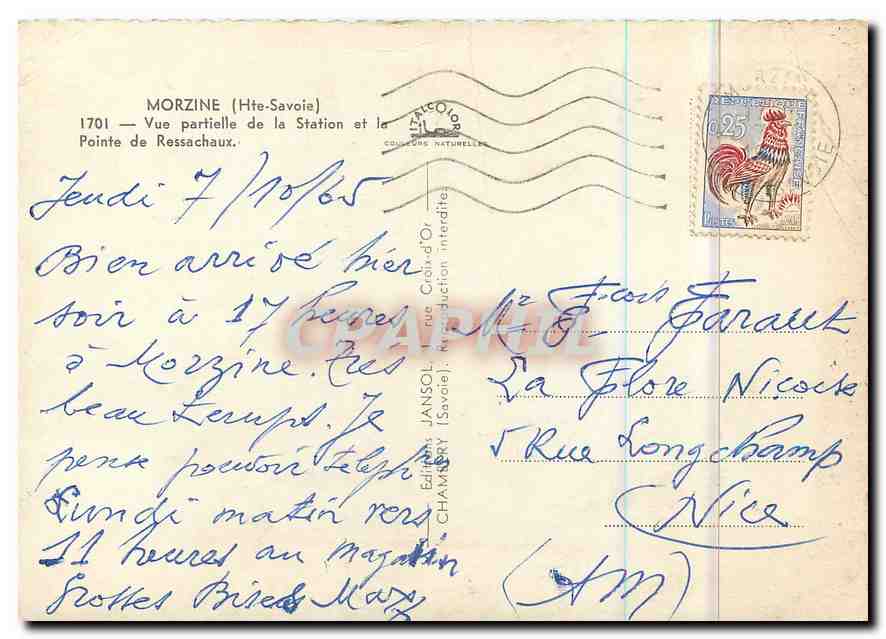 MORZINE (Hte-Savoie)
1701 — Vue partielle de la Station et la
Pointe de Ressachaux.
ITALCOLOR
COULEURS NATURELLES
REPUBLIQUE FRANÇAISE
0,25
POSTES
MORZINE
Jeudi 7/10/65
Bien arrivé hier
soir à 17 heures
à Morzine. Très
beau temps. Je
pense pouvoir teleph
Lundi matin vers
11 heures au magasin
Grosses Bises
Editions JANSOL, rue Croix-d'Or —
CHAMBERY (Savoie). Reproduction interdite.
CPAPHIL
Mr Fcois Faraut
La Flore Niçoise
5 Rue Longchamp
Nice
(AM)